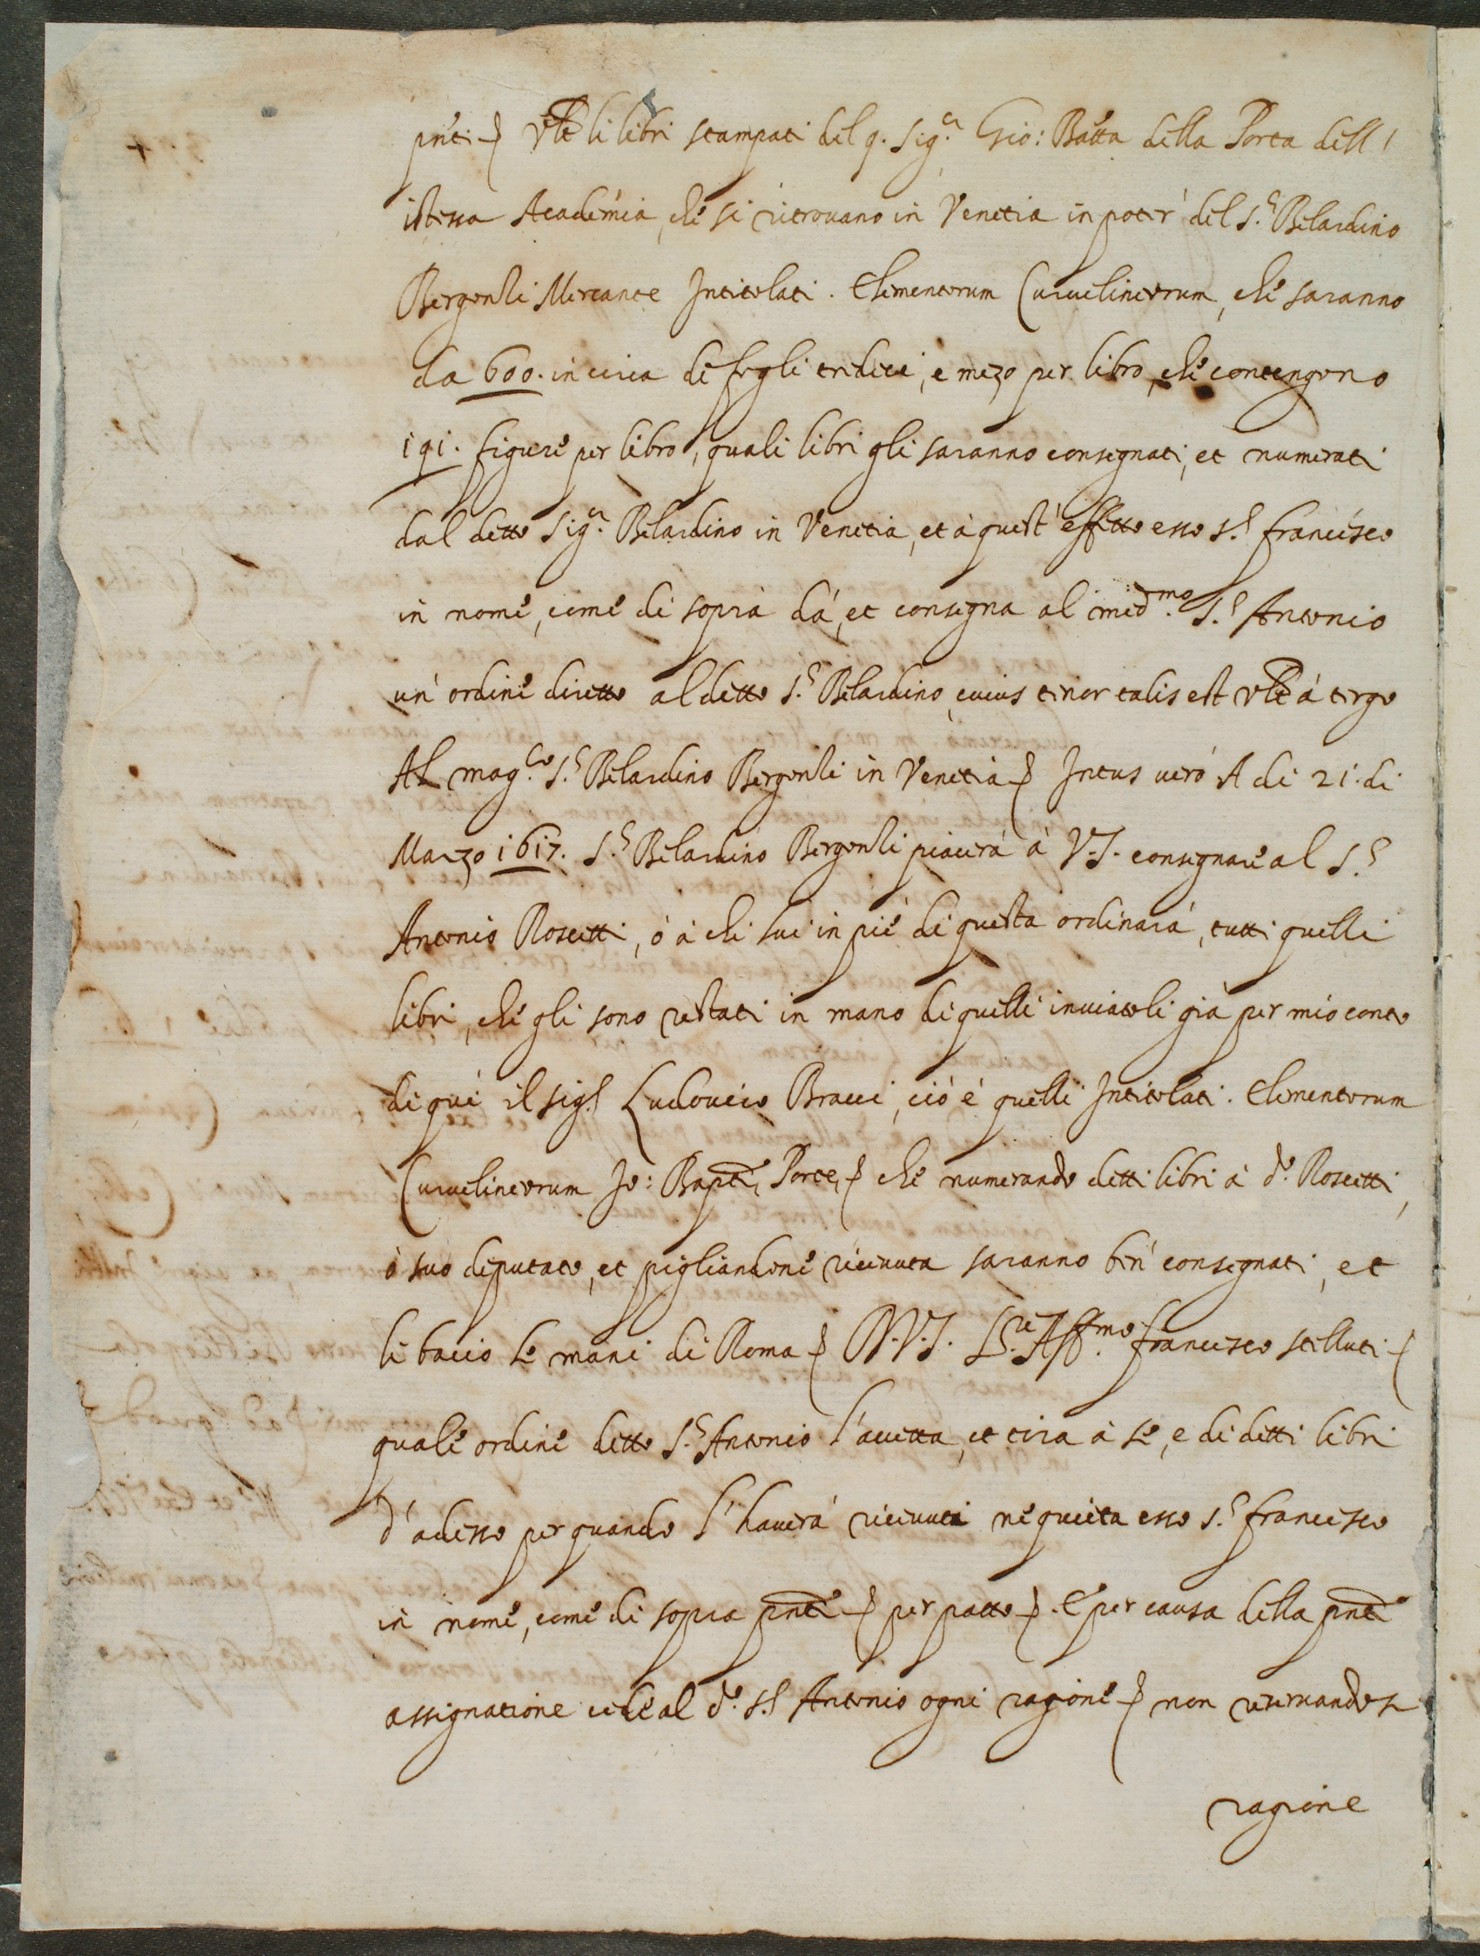 pnti vlt li libri stampati del q. Sig.r Gio: Batta della Porta dell'
istessa Academia, che si ritrovano in Venetia in poter del S.r Belardino
Bergonli Mercante Intitolati. Elementorum Curuelineorum, che saranno
da 600. in circa di fogli tredici, e mezo per libro, che contengono
191. figure per libro, quali libri gli saranno consegnati, et numerati
dal detto Sig.r Belardino in Venetia, et à quest' effetto esso S.r francesco
in nome, come di sopra dà, et consegna al med.mo S.r Antonio
un' ordine diretto al detto S.r Belardino, cuius tenor talis est vlt à tergo
Al mag.co S.r Belardino Bergonli in Venetia Intus verò A di 21. di
Marzo 1617. S.r Belardino Bergonli piacerà à V.S. consegnare al S.r
Antonio Roscetti, ò à chi lui in piè di questa ordinarà, tutti quelli
libri, che gli sono restati in mano di quelli inviatoli già per mio conto
di quì il Sig.r Ludovico Bracci, ciò è quelli Intitolati. Elementorum
Curuelineorum Jo: Bapte Porte, che numerando detti libri à d.o Roscetti,
ò suo deputato, et pigliandone ricevuta saranno ben consegnati, et
li bacio le mani di Roma D.V.S. S.re Aff.mo francesco stelluti
quale ordine detto S.r Antonio l'accetta, et tira à se, e di detti libri
d'adesso per quando l'haverà ricevuti ne quieta esso S.r francesco
in nome, come di sopra pnte per patto. E per causa della pnte
assignatione cede al d.o S.r Antonio ogni ragione non riservandose
ragione